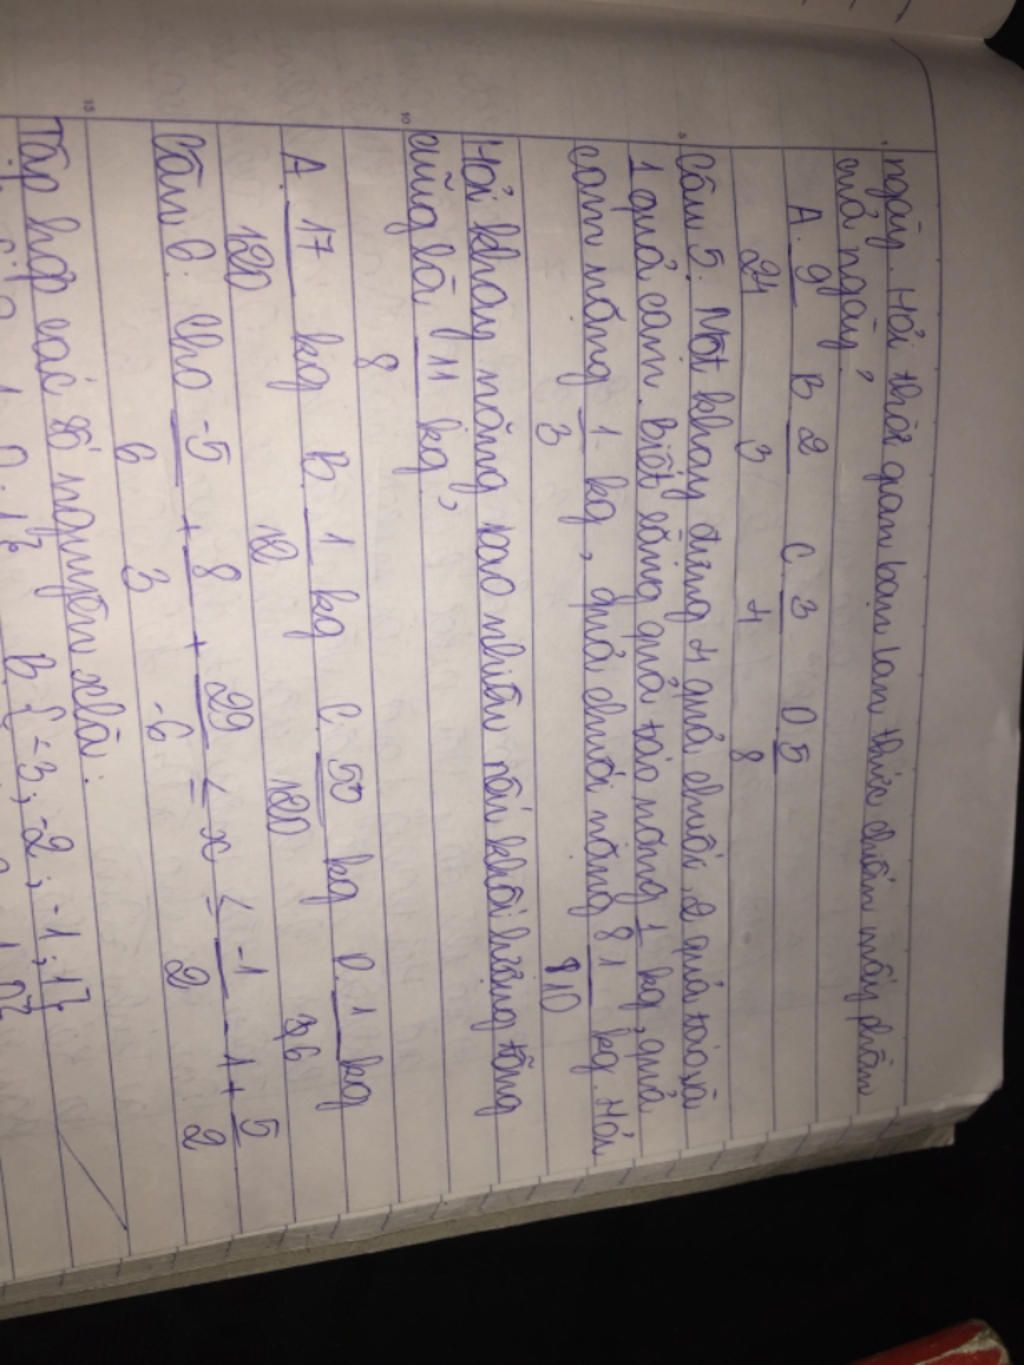 ngày. Hỏi thời gian bạn Lan thức chiếm mấy phần
của ngày?
A. 9/24 B 2/3 C. 3/4 D 5/8
Câu 5. Một khay đựng 4 quả chuối, 2 quả táo và
1 quả cam. Biết rằng quả táo nặng 1/8 kg, quả
cam nặng 1/3 kg, quả chuối nặng 1/10 kg. Hỏi
Hỏi khay nặng bao nhiêu nếu khối lượng tổng
cũng là 11/8 kg?
A. 17/120 kg B. 1/12 kg C. 50/120 kg D. 1/36 kg
Câu 6: Cho -5/6 + 8/3 + 29/-6 ≤ x ≤ -1/2 - 1 + 5/2
Tập hợp các số nguyên x là:
B { -3; -2; -1; 1}